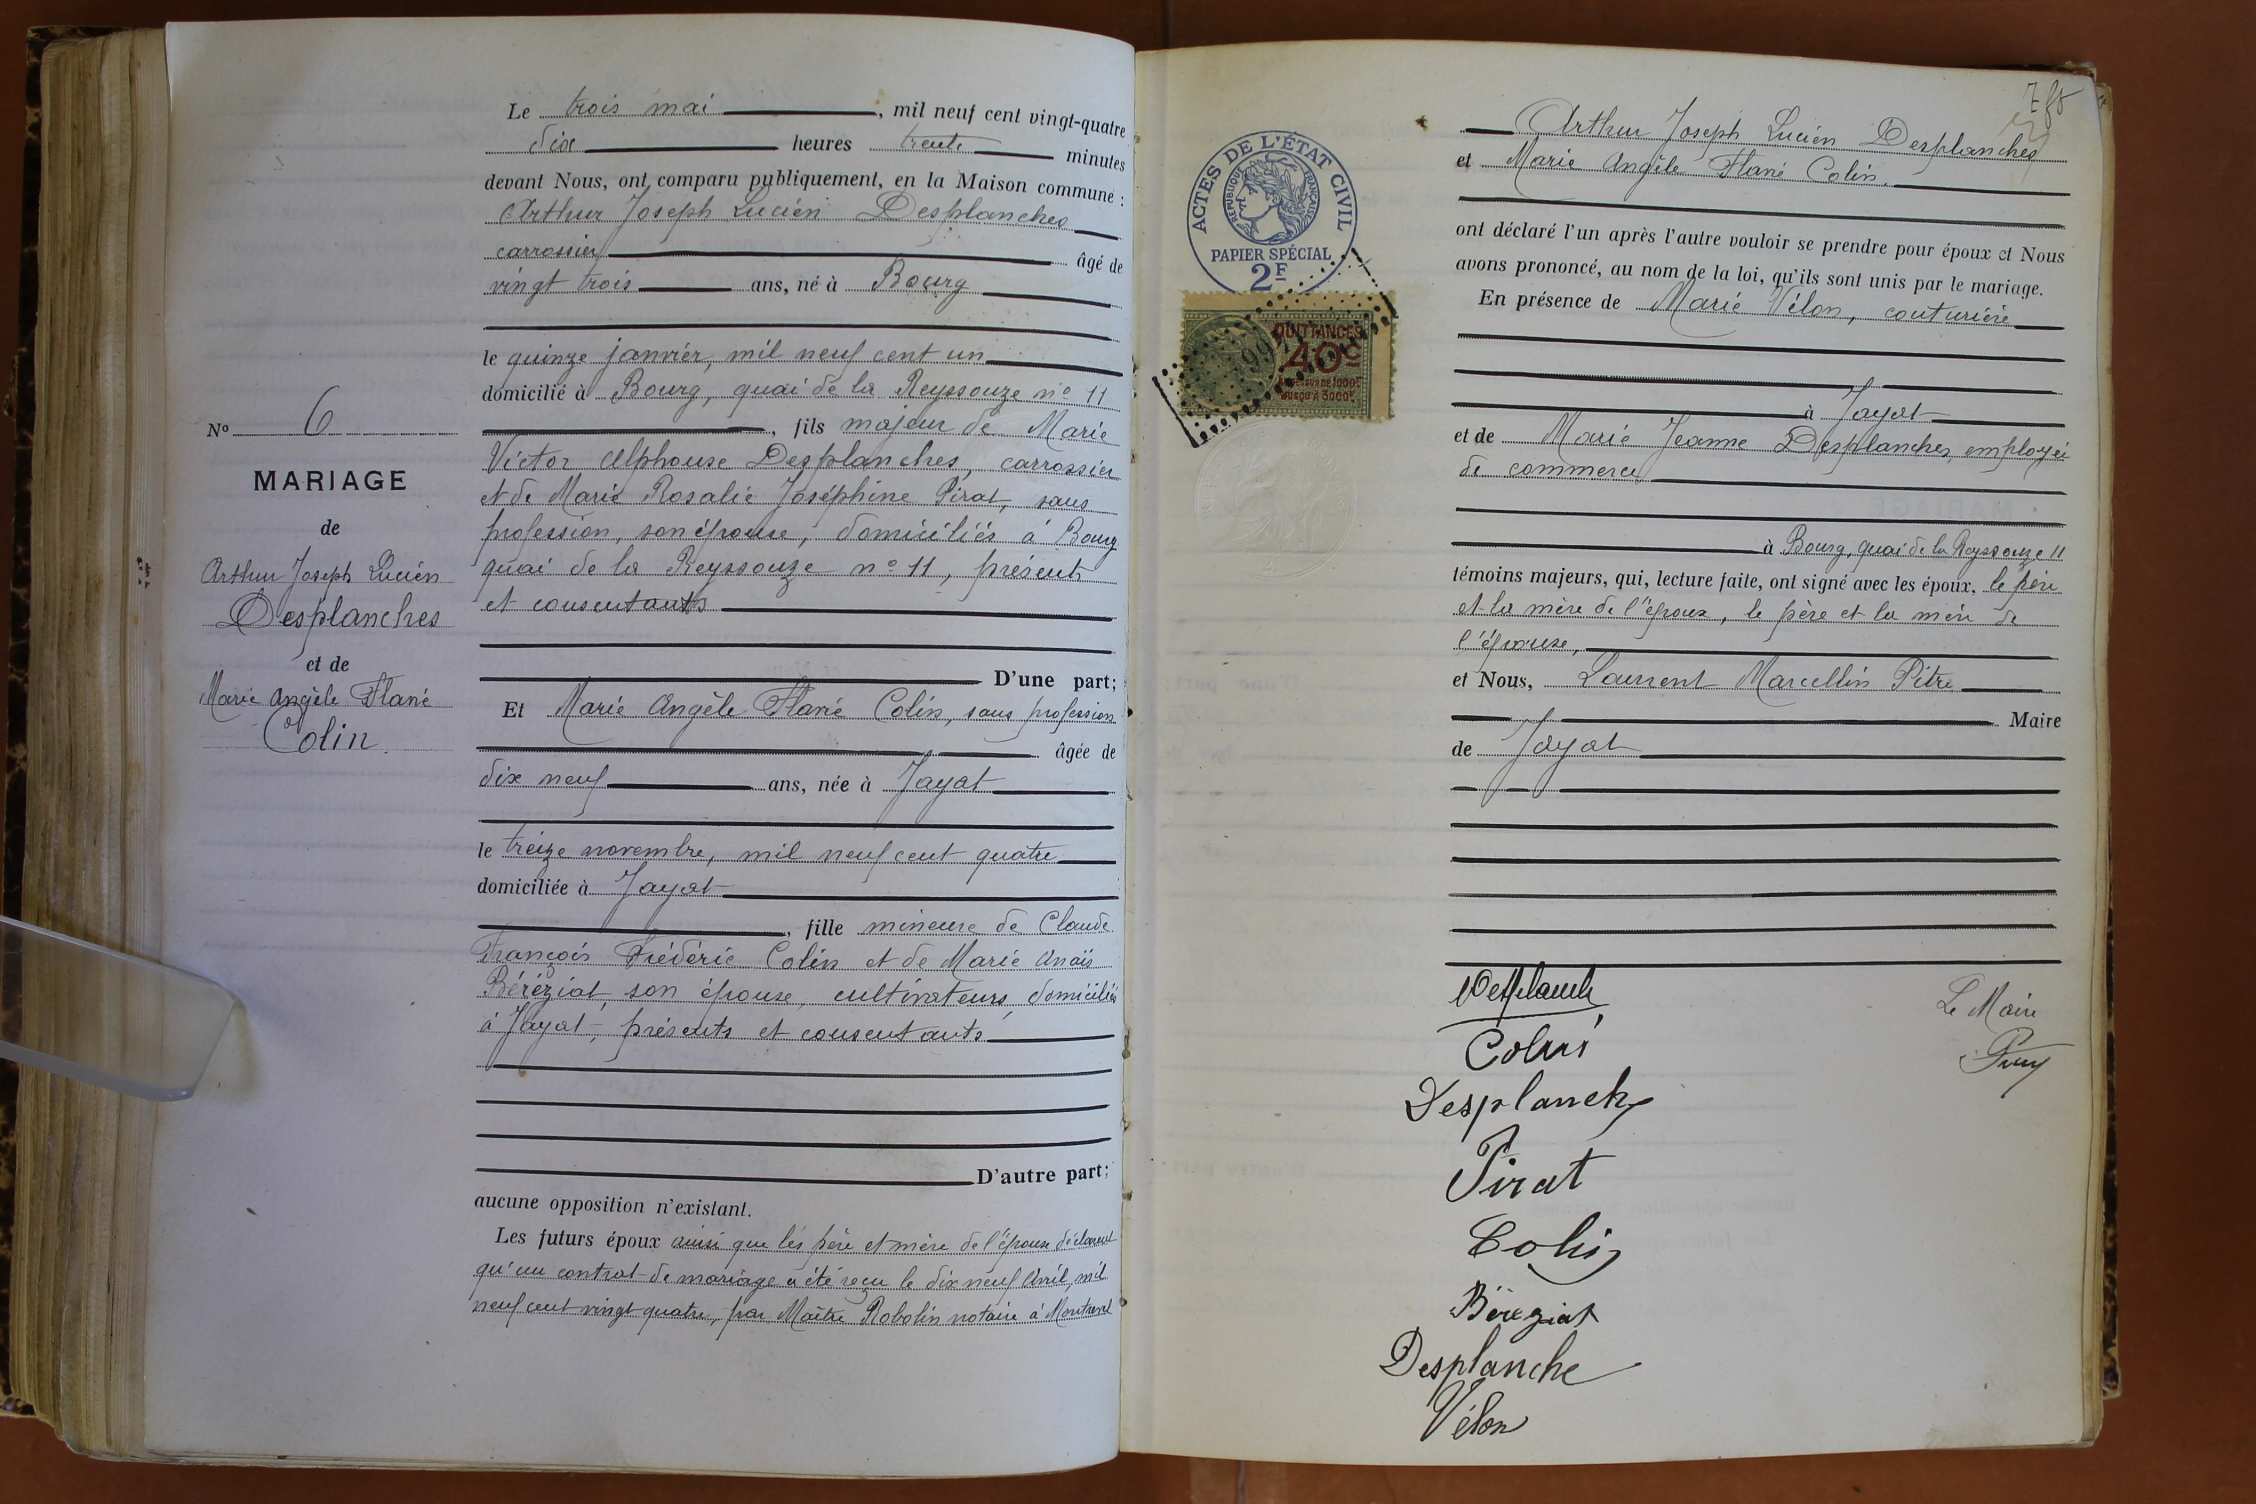 Le trois mai, mil neuf cent vingt-quatre
dix heures trente minutes
devant Nous, ont comparu publiquement, en la Maison commune :
Arthur Joseph Lucien Desplanches
carrossier âgé de
vingt trois ans, né à Bourg
le quinze janvier, mil neuf cent un
domicilié à Bourg, quai de la Reyssouze n° 11
, fils majeur de Marie
Victor Alphonse Desplanches, carrossier
et de Marie Rosalie Joséphine Pirat, sans
profession, son épouse, domiciliés à Bourg
quai de la Reyssouze n° 11, présents
et consentants
D'une part;
Et Marie Angèle Flavie Colin, sans profession
âgée de
dix neuf ans, née à Jayat
le treize novembre, mil neuf cent quatre
domiciliée à Jayat
, fille mineure de Claude
François Frédéric Colin et de Marie Anaïs
Béréziat, son épouse, cultivateurs, domiciliés
à Jayat, présents et consentants
D'autre part;
aucune opposition n'existant.
Les futurs époux ainsi que les père et mère de l'épouse déclarent
qu'un contrat de mariage a été reçu le dix neuf Avril, mil
neuf cent vingt quatre, par Maître Robolin notaire à Montrevel
N° 6
MARIAGE
de
Arthur Joseph Lucien
Desplanches
et de
Marie Angèle Flavie
Colin.
ACTES DE L'ÉTAT CIVIL
RÉPUBLIQUE FRANÇAISE
PAPIER SPÉCIAL
2F
QUITTANCES
40c
Arthur Joseph Lucien Desplanches
et Marie Angèle Flavie Colin.
ont déclaré l'un après l'autre vouloir se prendre pour époux et Nous
avons prononcé, au nom de la loi, qu'ils sont unis par le mariage.
En présence de Marie Vélon, couturière
à Jayat
et de Marie Jeanne Desplanches, employée
de commerce
à Bourg, quai de la Reyssouze 11
témoins majeurs, qui, lecture faite, ont signé avec les époux, le père
et la mère de l'époux, le père et la mère de
l'épouse,
et Nous, Laurent Marcellin Pitre
Maire
de Jayat
Colin
Desplanches
Pirat
Colin
Béréziat
Desplanche
Vélon
Le Maire